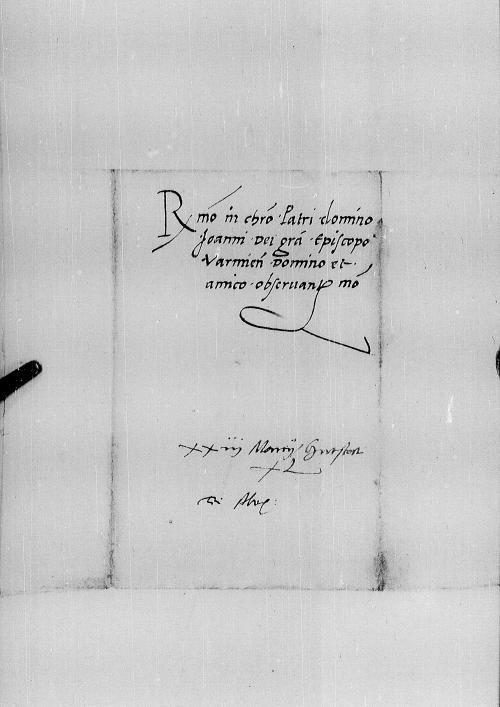 Rmo in chro Patri domino
Joanni Dei gra Episcopo
Varmien Domino et
amico observan mo
xxiij Martij
XL